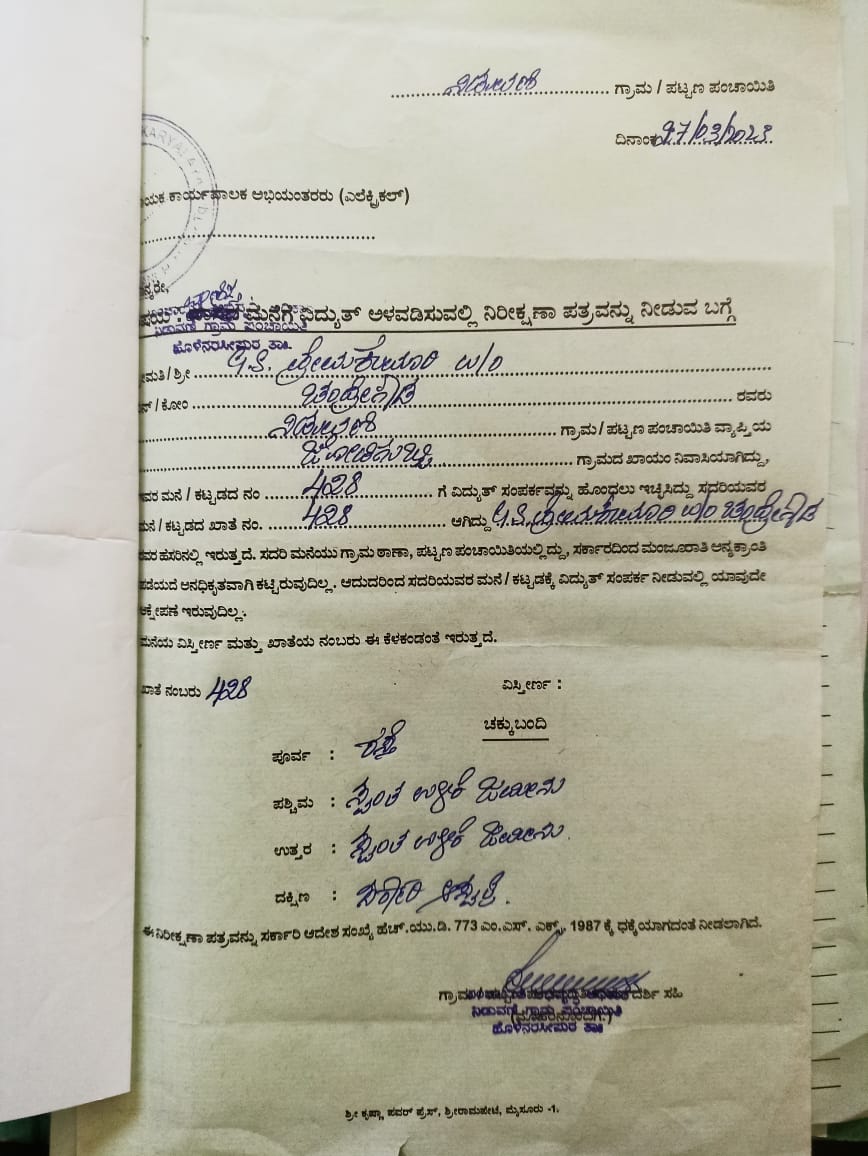 ನಿಡುವಣಿ ಗ್ರಾಮ / ಪಟ್ಟಣ ಪಂಚಾಯಿತಿ
ದಿನಾಂಕ 27/03/2023
KARYALAYA
ಯಕ ಕಾರ್ಯಪಾಲಕ ಅಭಿಯಂತರರು (ಎಲೆಕ್ಟ್ರಿಕಲ್)
ನ್ಯರೇ,
ಷಯ : ಮನೆಗೆ ವಿದ್ಯುತ್ ಅಳವಡಿಸುವಲ್ಲಿ ನಿರೀಕ್ಷಣಾ ಪತ್ರವನ್ನು ನೀಡುವ ಬಗ್ಗೆ
ನಿಡುವಣಿ ಗ್ರಾಮ ಪಂಚಾಯಿತಿ
ಹೊಳೆನರಸೀಪುರ ತಾ॥
ೀಮತಿ / ಶ್ರೀ ಪ್ರೇಮಕುಮಾರಿ W/O
ನ್ / ಕೋಂ ಚಂದ್ರೇಗೌಡ ರವರು
ನಿಡುವಣಿ ಗ್ರಾಮ / ಪಟ್ಟಣ ಪಂಚಾಯಿತಿ ವ್ಯಾಪ್ತಿಯ
ಗ್ರಾಮದ ಖಾಯಂ ನಿವಾಸಿಯಾಗಿದ್ದು,
ವರ ಮನೆ / ಕಟ್ಟಡದ ನಂ 428 ಗೆ ವಿದ್ಯುತ್ ಸಂಪರ್ಕವನ್ನು ಹೊಂಧಲು ಇಚ್ಛಿಸಿದ್ದು ಸದರಿಯವರ
ಮನೆ / ಕಟ್ಟಡದ ಖಾತೆ ನಂ. 428 ಆಗಿದ್ದು ಪ್ರೇಮಕುಮಾರಿ W/O ಚಂದ್ರೇಗೌಡ
ರವರ ಹೆಸರಿನಲ್ಲಿ ಇರುತ್ತದೆ. ಸದರಿ ಮನೆಯು ಗ್ರಾಮ ಠಾಣಾ, ಪಟ್ಟಣ ಪಂಚಾಯಿತಿಯಲ್ಲಿದ್ದು, ಸರ್ಕಾರದಿಂದ ಮಂಜೂರಾತಿ ಅನ್ಯಕ್ರಾಂತಿ
ಪಡೆಯದೆ ಅನಧಿಕೃತವಾಗಿ ಕಟ್ಟಿರುವುದಿಲ್ಲ. ಆದುದರಿಂದ ಸದರಿಯವರ ಮನೆ / ಕಟ್ಟಡಕ್ಕೆ ವಿದ್ಯುತ್ ಸಂಪರ್ಕ ನೀಡುವಲ್ಲಿ ಯಾವುದೇ
ಆಕ್ಷೇಪಣೆ ಇರುವುದಿಲ್ಲ.
ಮನೆಯ ವಿಸ್ತೀರ್ಣ ಮತ್ತು ಖಾತೆಯ ನಂಬರು ಈ ಕೆಳಕಂಡಂತೆ ಇರುತ್ತದೆ.
ಖಾತೆ ನಂಬರು 428 ವಿಸ್ತೀರ್ಣ :
ಚಕ್ಕುಬಂದಿ
ಪೂರ್ವ : ರಸ್ತೆ
ಪಶ್ಚಿಮ : ಸ್ವಂತ ಉಳಿಕೆ ಜಮೀನು
ಉತ್ತರ : ಸ್ವಂತ ಉಳಿಕೆ ಜಮೀನು.
ದಕ್ಷಿಣ : ಸರ್ಕಾರಿ ಆಸ್ಪತ್ರೆ.
ಈ ನಿರೀಕ್ಷಣಾ ಪತ್ರವನ್ನು ಸರ್ಕಾರಿ ಆದೇಶ ಸಂಖ್ಯೆ ಹೆಚ್.ಯು.ಡಿ. 773 ಎಂ.ಎಸ್. ಎಕ್ಸ್, 1987 ಕ್ಕೆ ಧಕ್ಕೆಯಾಗದಂತೆ ನೀಡಲಾಗಿದೆ.
ಗ್ರಾಮ ದರ್ಶಿ ಸಹಿ
ನಿಡುವಣಿ ಗ್ರಾಮ ಪಂಚಾಯಿತಿ
(ಮೊಹರಿನೊಂದಿಗೆ)
ಹೊಳೆನರಸೀಪುರ ತಾ॥
ಶ್ರೀ ಕೃಷ್ಣಾ ಪವರ್ ಪ್ರೆಸ್, ಶ್ರೀರಾಮಪೇಟೆ, ಮೈಸೂರು -1.